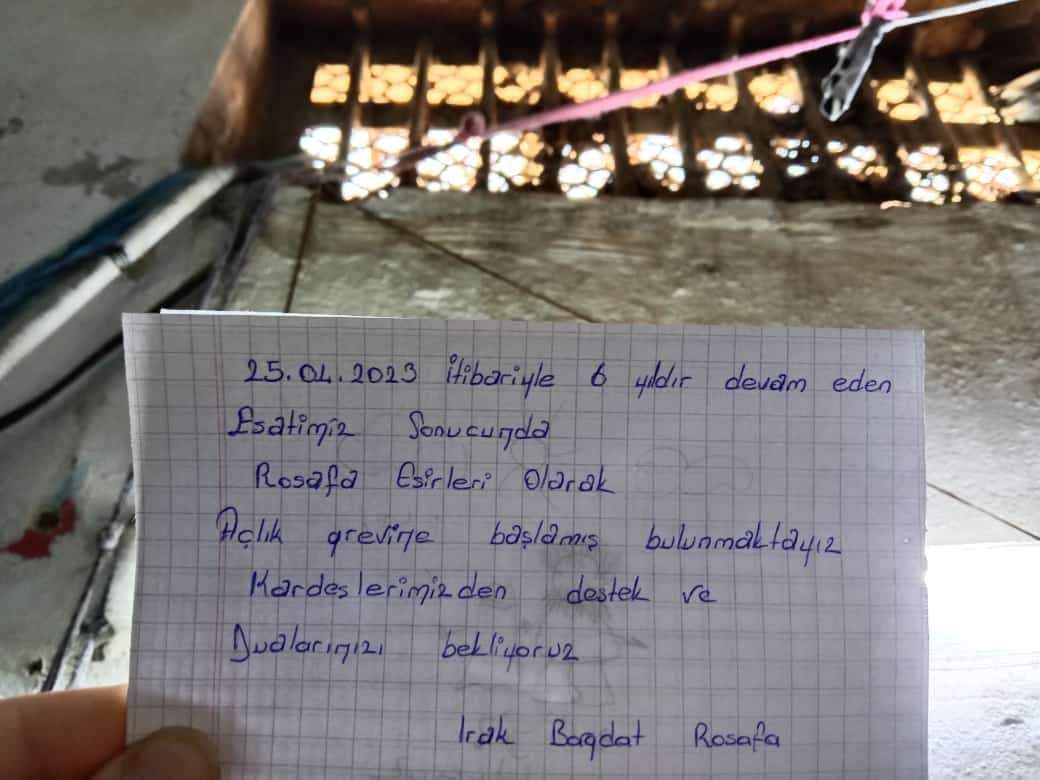 25.04.2023 itibariyle 6 yıldır devam eden
Esatimiz Sonucunda
Rosafa Esirleri Olarak
Açlık grevine başlamış bulunmaktayız
Kardeslerimizden destek ve
Dualarınızı bekliyoruz
Irak Bagdat Rosafa